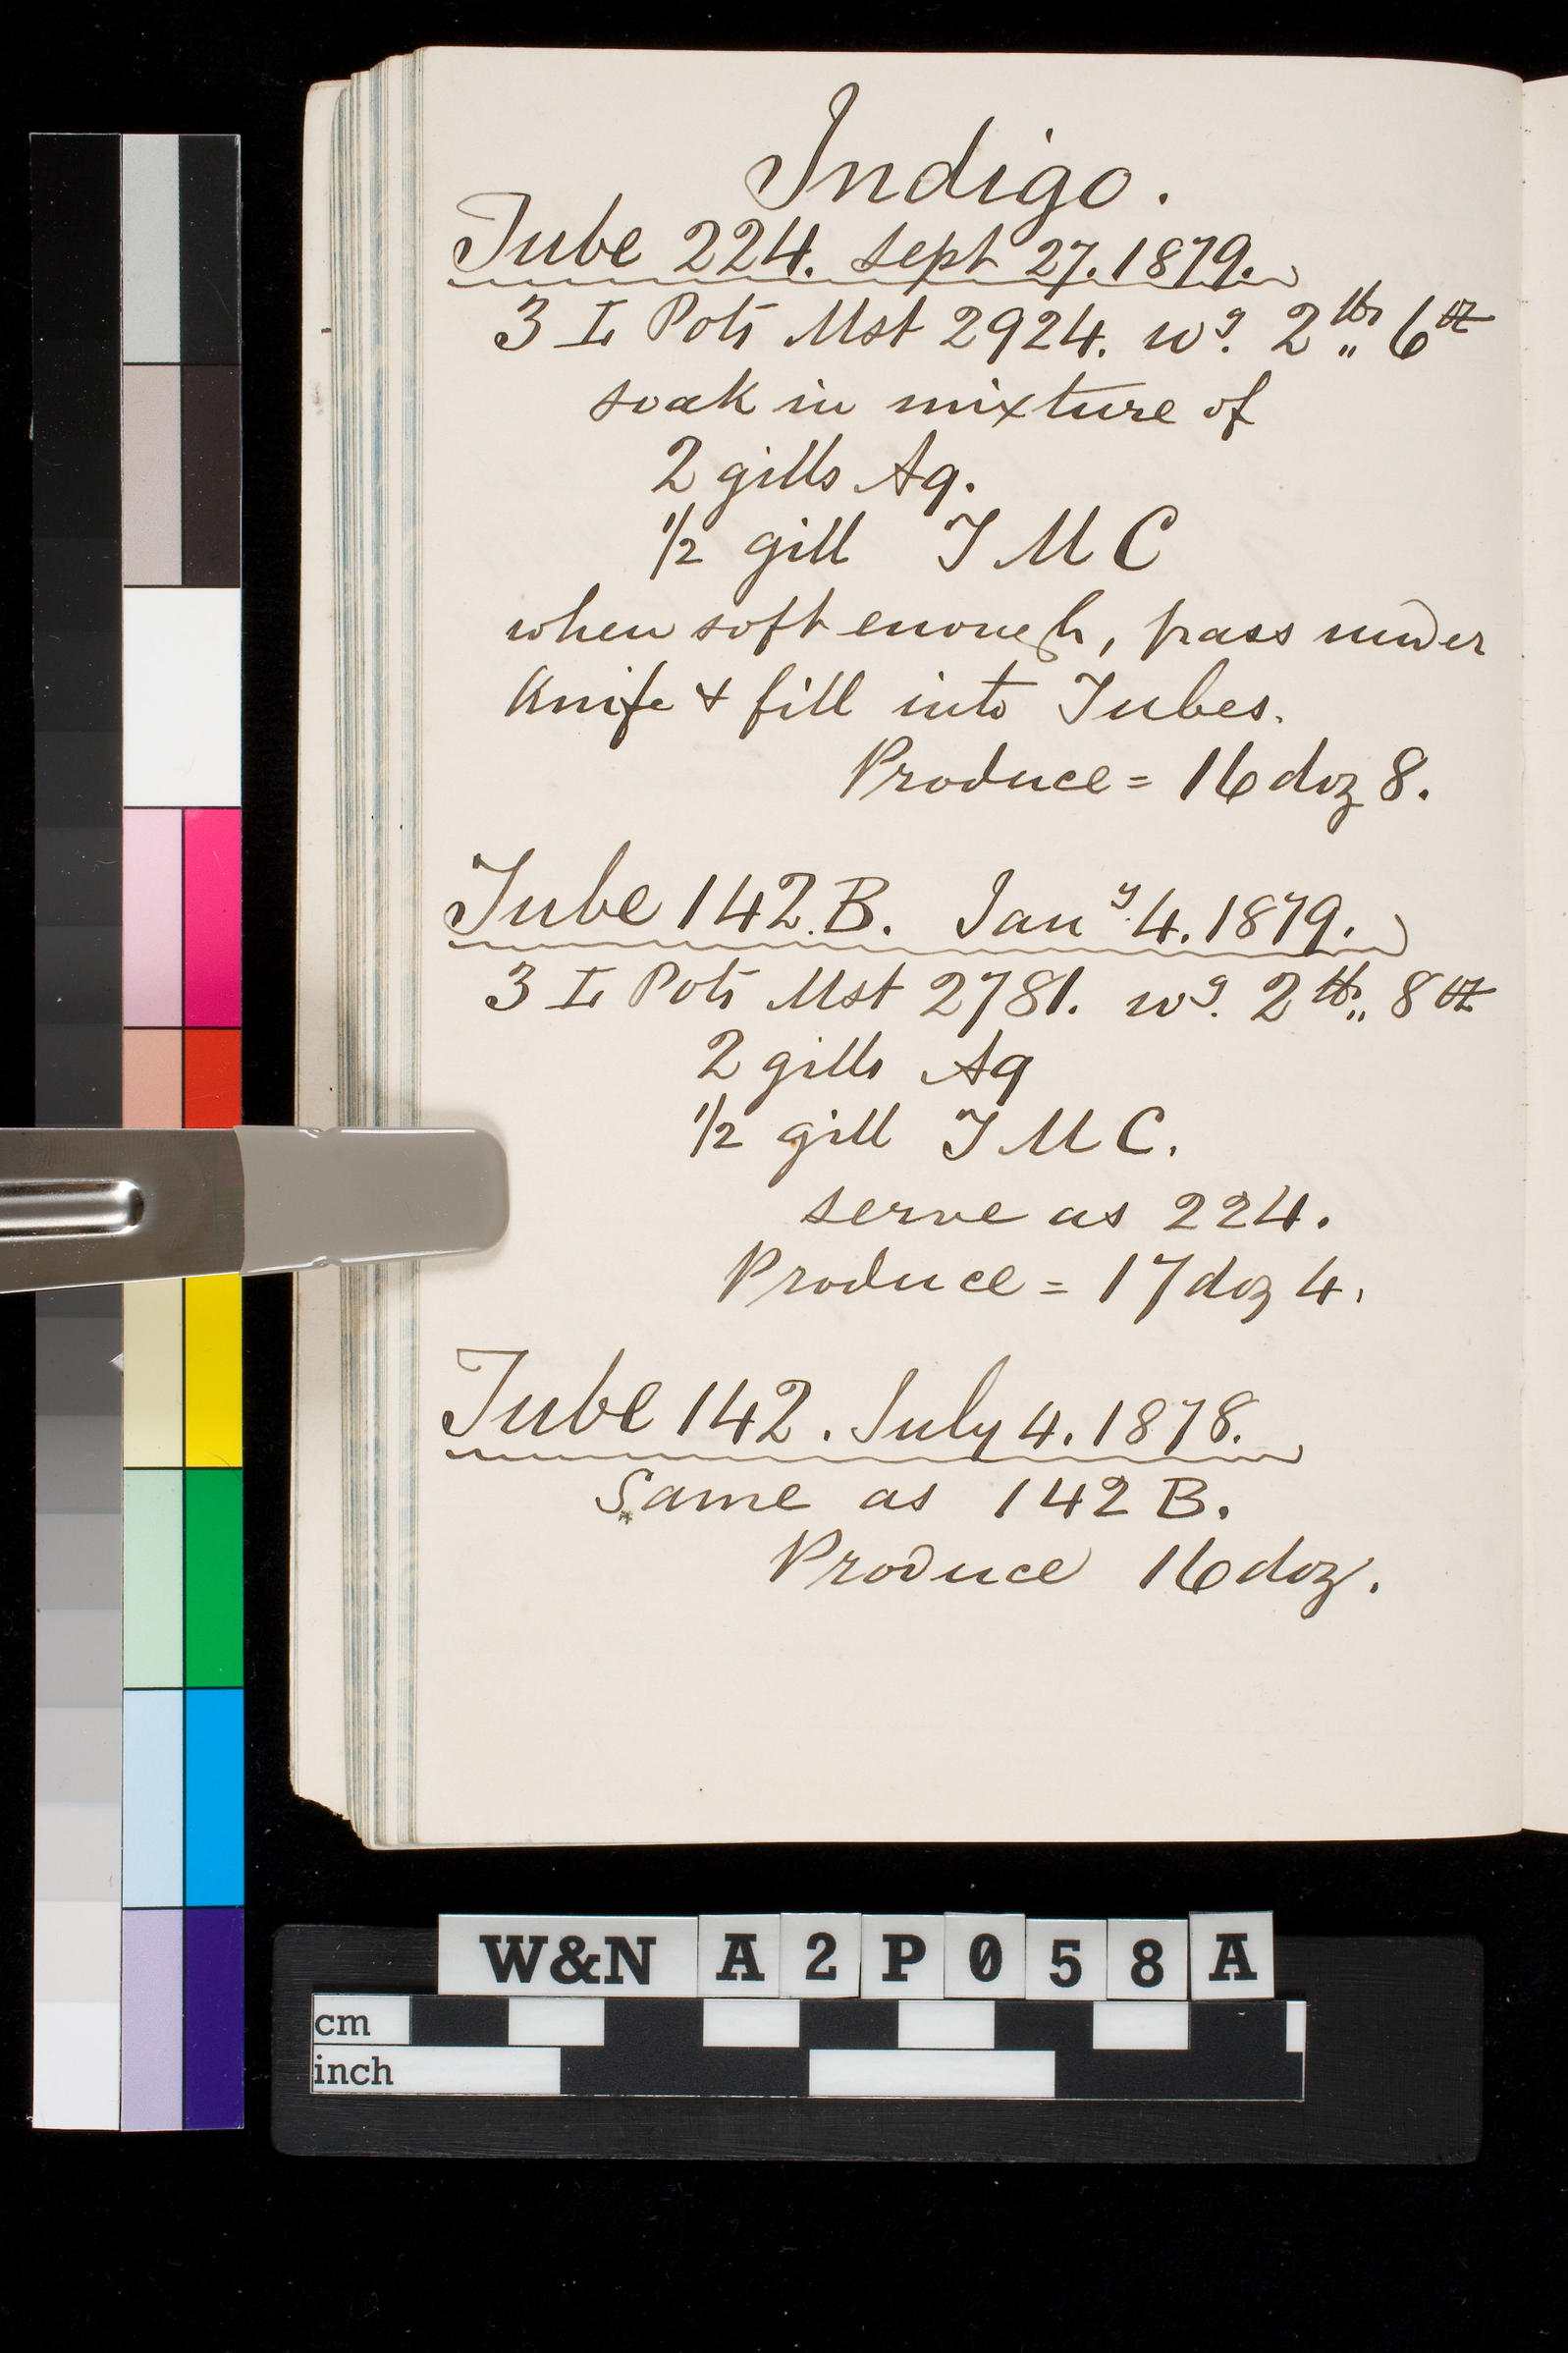 Indigo.
Tube 224. Sept 27. 1879.
3 I Pots Mst 2924. wg. 2 lbs,, 6 oz
soak in mixture of
2 gills Aq.
1/2 gill T M C
when soft enough, pass under
Knife & fill into Tubes.
Produce = 16 doz 8.
Tube 142 B. Jany. 4. 1879.
3 I Pots Mst 2781. wg. 2 lbs,, 8 oz
2 gills Aq
1/2 gill T M C.
serve as 224.
Produce = 17 doz 4.
Tube 142. July 4. 1878.
Same as 142 B.
Produce 16 doz.
W&N A2P058A
cm
inch